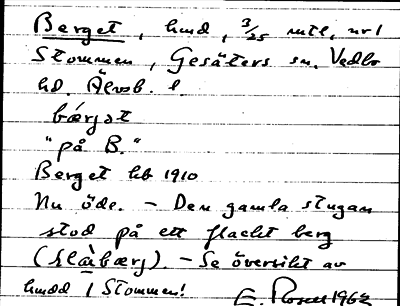 Berget, hmd, 3/25 mtl, nr 1
Stommen, Gesäters sn, Vedbo
hd. Älvsb. l.
bærjət
"på B."
Berget hb 1910
Nu öde. – Den gamla stugan
stod på ett flackt berg
(hlàbærj). – Se översikt av
hmdd i Stommen!
E. Rosell 1962